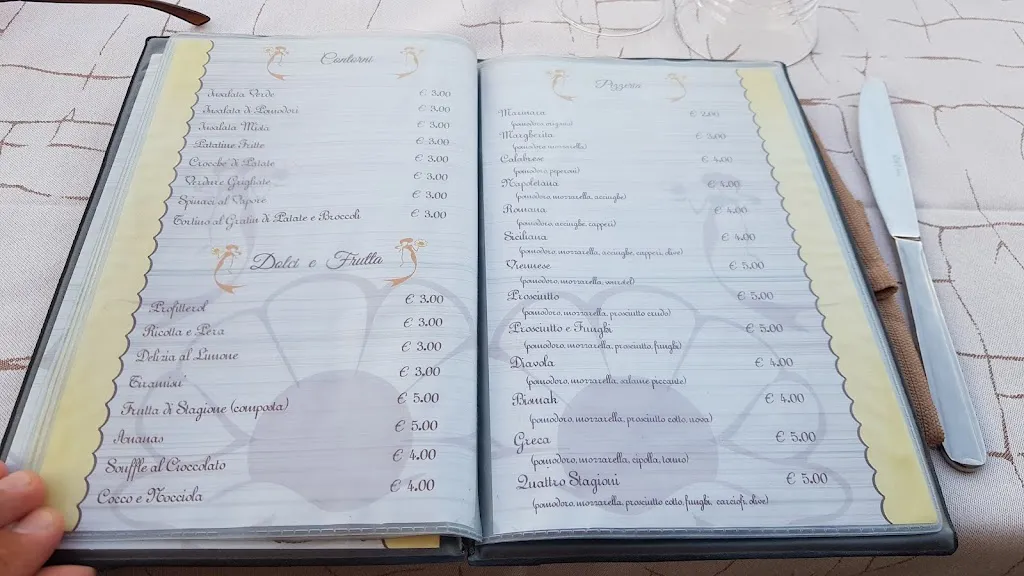 Contorni
Insalata Verde € 3.00
Insalata di Pomodori € 3.00
Insalata Mista € 3.00
Patatine Fritte € 3.00
Crocche di Patate € 3.00
Verdure Grigliate € 3.00
Spinaci al Vapore € 3.00
Tortino al Gratin di Patate e Broccoli € 3.00
Dolci e Frutta
Profitterol € 3.00
Ricotta e Pera € 3.00
Delizia al Limone € 3.00
Tiramisu' € 3.00
Frutta di Stagione (composta) € 5.00
Ananas € 5.00
Souffle al Cioccolato € 4.00
Cocco e Nocciola € 4.00
Pizzeria
Marinara €
(pomodoro, origano)
Margherita € 3.00
(pomodoro, mozzarella)
Calabrese € 4.00
(pomodoro, peperoni)
Napoletana € 4.00
(pomodoro, mozzarella, acciughe)
Romana € 4.00
(pomodoro, acciughe, capperi)
Siciliana € 4.00
(pomodoro, mozzarella, acciughe, capperi, olive)
Viennese € 5.00
(pomodoro, mozzarella, wurstel)
Prosciutto € 5.00
(pomodoro, mozzarella, prosciutto crudo)
Prosciutto e Funghi € 5.00
(pomodoro, mozzarella, prosciutto, funghi)
Diavola € 4.00
(pomodoro, mozzarella, salame piccante)
Bismak € 4.00
(pomodoro, mozzarella, prosciutto cotto, uova)
Greca € 5.00
(pomodoro, mozzarella, cipolla, tonno)
Quattro Stagioni € 5.00
(pomodoro, mozzarella, prosciutto cotto, funghi, carciofi, olive)